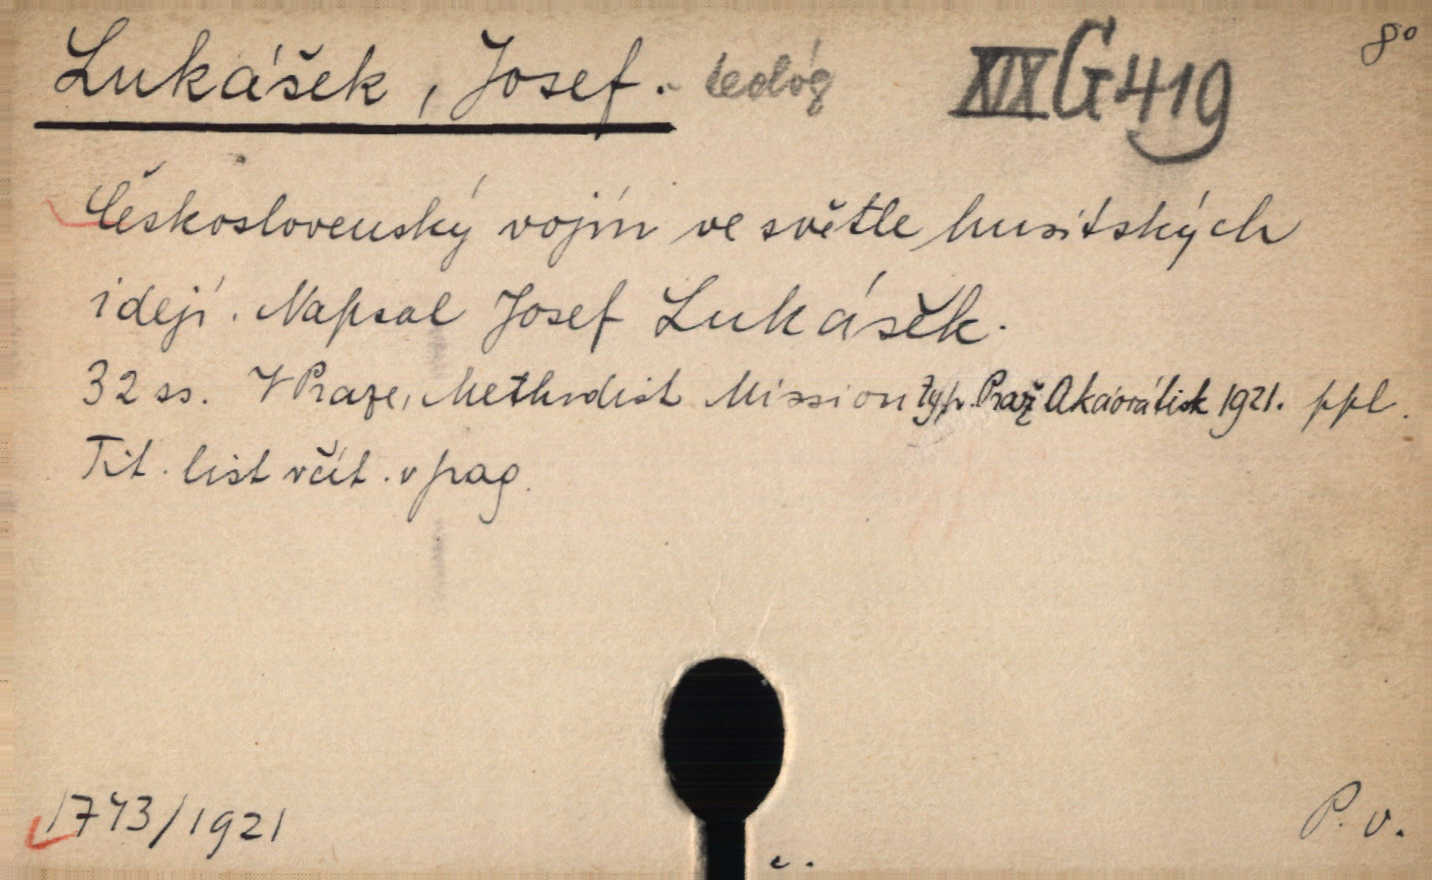 Lukášek, Josef. teológ XIX G 419 8°
Československý vojín ve světle husitských
idejí. Napsal Josef Lukášek.
32 ss. V Praze, Methodist Mission typ. Praž. Akciová tisk 1921. ppl.
Tit. list včít. v pag.
1743/1921 P. v.